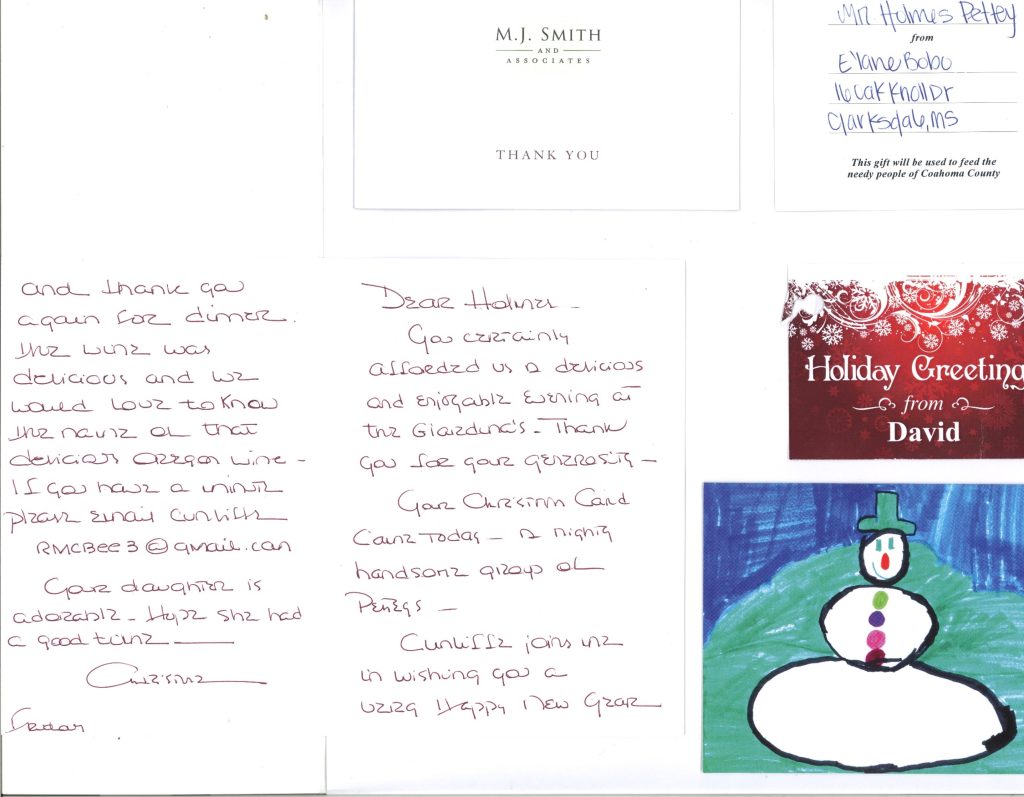 M.J. SMITH
AND
ASSOCIATES
THANK YOU
Mr. Holmes Pettey
from
Elane Bobo
16 Oak Knoll Dr
Clarksdale, MS
This gift will be used to feed the
needy people of Coahoma County
Dear Holmes -
You certainly
afforded us a delicious
and enjoyable evening at
the Giardina's - Thank
you for your generosity -
Your Christmas Card
came today - a mighty
handsome group of
Petteys -
Cunliffe joins me
in wishing you a
very Happy New Year
and thank you
again for dinner.
The wine was
delicious and we
would love to know
the name of that
delicious Oregon wine -
If you have a minute
please email Cunliffe
RMCBEE3@gmail.com
Your daughter is
adorable - Hope she had
a good time
Christine
Friday
Holiday Greeting
from
David